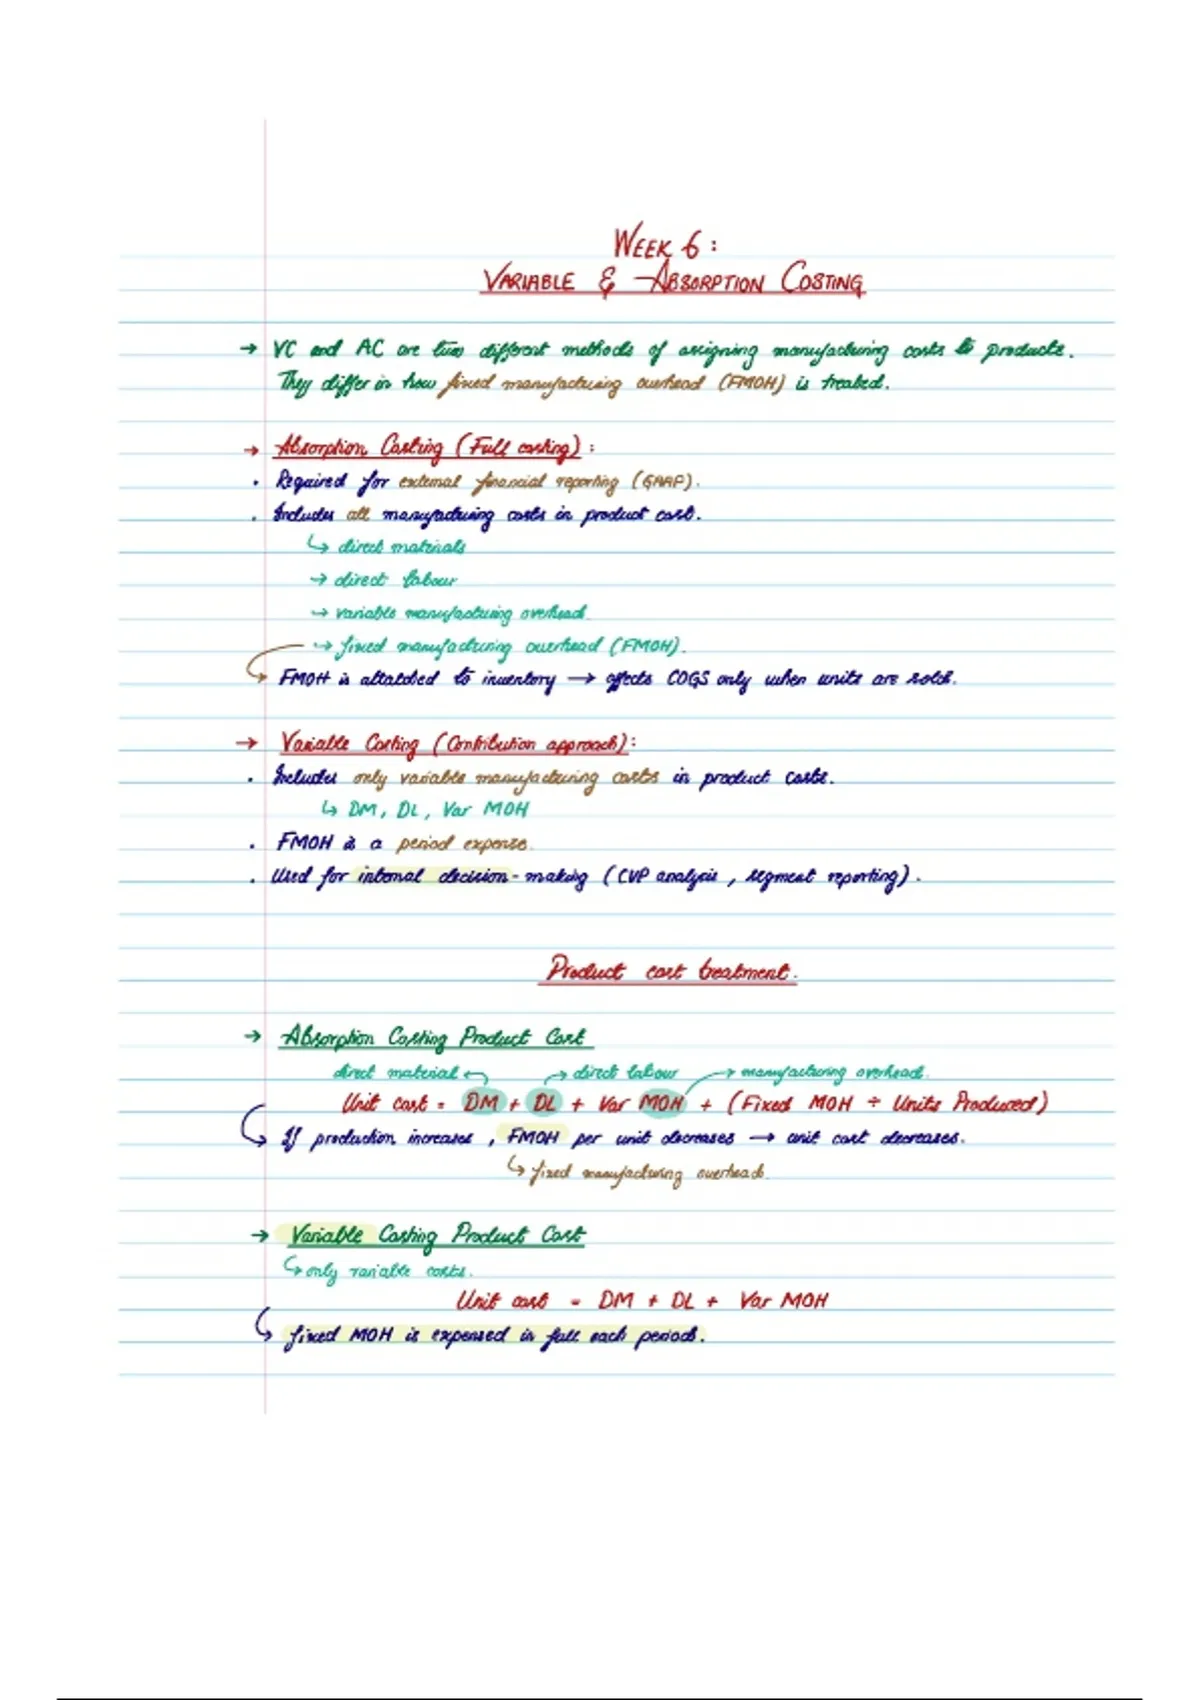 WEEK 6:
VARIABLE & ABSORPTION COSTING
→ VC and AC are two different methods of assigning manufacturing costs to products.
They differ in how fixed manufacturing overhead (FMOH) is treated.
→ Absorption Costing (Full costing):
• Required for external financial reporting (GAAP).
• Includes all manufacturing costs in product cost.
↳ direct materials
→ direct labour
→ variable manufacturing overhead.
→ fixed manufacturing overhead (FMOH).
FMOH is attatched to inventory → affects COGS only when units are sold.
→ Variable Costing (Contribution approach):
• Includes only variable manufacturing costs in product costs.
↳ DM, DL, Var MOH
• FMOH is a period expense.
• Used for internal decision-making (CVP analysis, segment reporting).
Product cost treatment.
→ Absorption Costing Product Cost
direct material ↩ → direct labour → manufacturing overhead.
Unit cost = DM + DL + Var MOH + (Fixed MOH ÷ Units Produced)
↳ If production increases, FMOH per unit decreases → unit cost decreases.
↳ fixed manufacturing overhead.
→ Variable Costing Product Cost
↳ only variable costs.
Unit cost = DM + DL + Var MOH
↳ fixed MOH is expensed in full each period.